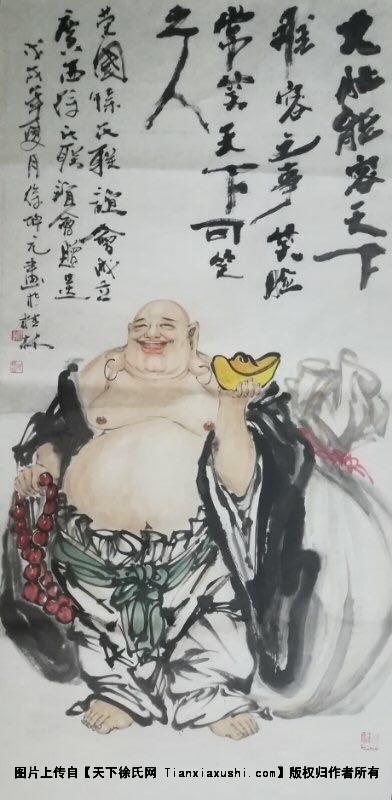 大肚能容天下
難容之事笑脸
常笑天下可笑
之人
國徐氏联誼會成立
廣西徐氏联誼會赠送
戊戌年夏月徐坤元畫於桂林
图片上传自【天下徐氏网 Tianxiaxushi.com】版权归作者所有